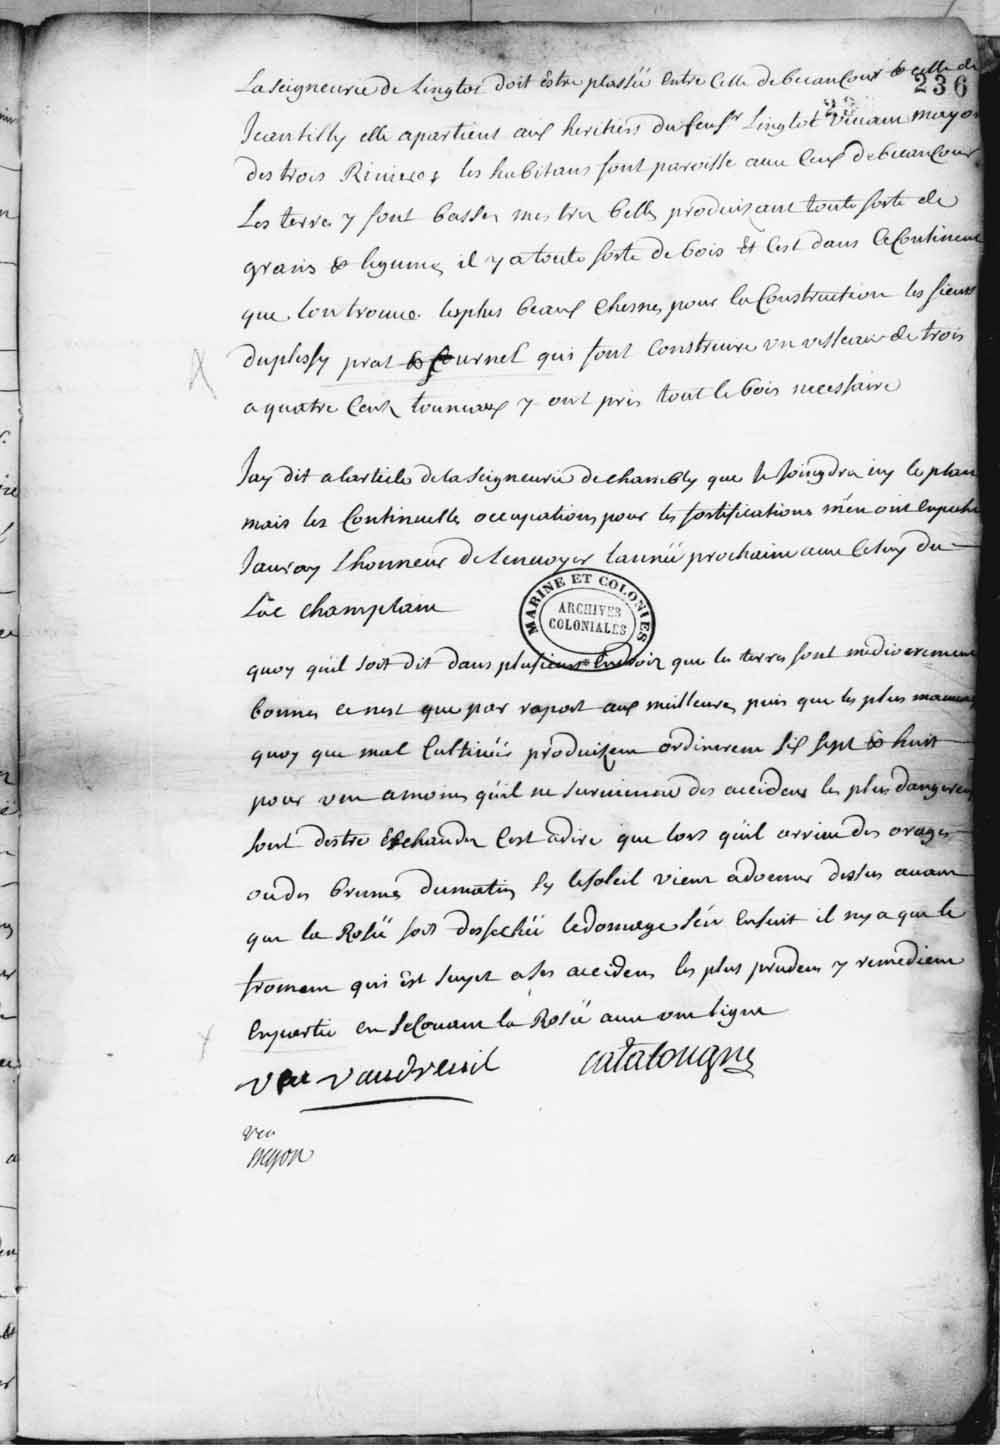 236
La seigneurie de Linglos doit Estre plassëë entre Celle de becancour & celle de
Jeantilly elle apartient aux heritiers du feu sr Linglot vivant mayor
des trois Rivieres les habitans sont paroisse avec Ceux de becancour
Les terres y sont basses mes tres belles produizant toute sorte de
grains & legumes il y a toute sorte de bois Et C'est dans Ce Continent
que lon trouve les plus beaux Chesnes pour la Construction les sieurs
duplessy prat & fournel qui font Construire un vesseau de trois
a quatre Cent tonneaux y ont pris tout le bois necessaire
Jay dit a larticle de la seigneurie de chambly que Je Joingdra icy le plan
mais les Continuelles occupations pour les fortifications m'en ont Enpeche
Jauray Lhonneur de Lenvoyer lannëë prochaine avec Celuy du
Lac champlain
MARINE ET COLONIES
ARCHIVES
COLONIALES
quoy quil soit dit dans plusieurs Endroiz que les terres sont mediocrement
bonnes ce nest que par raport aux meilleures puis que les plus mauvaises
quoy que mal Cultivëës produizent ordinerem six sept & huit
pour un a moins quil ne survienne des accidens les plus dangereux
sont destre Echaudez Cest adire que lors quil arrive des orages
ou des brumes du matin sy le soleil vient a donner dessus avant
que la Rosëë soit dessechëë le domage s'en Ensuit il ny a que le
froment qui est sujet a ses accidens les plus prudens y remedient
En partie en secouant la Rosëë avec une ligne
Veu vaudreuil
catalougne
veu
Begon